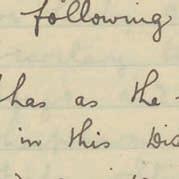 following
has as the
in this Dic